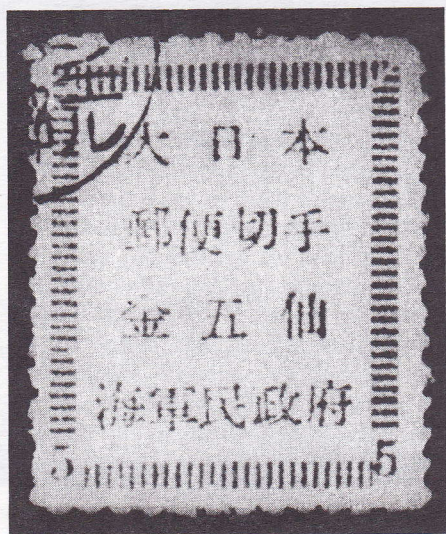 大日本
郵便切手
金五仙
海軍民政府
5 5